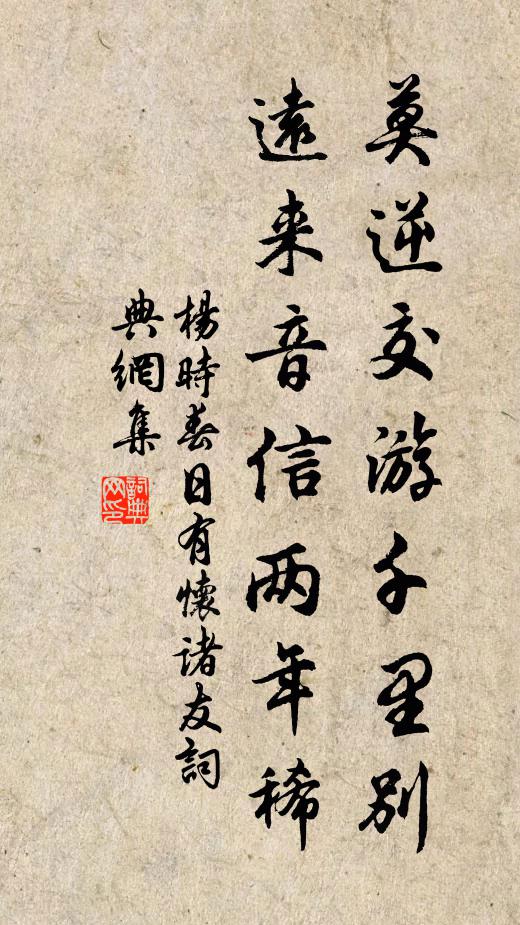 莫逆交游千里别
遠来音信两年稀
楊時春日有懷諸友詞
典網集
詞典
网印